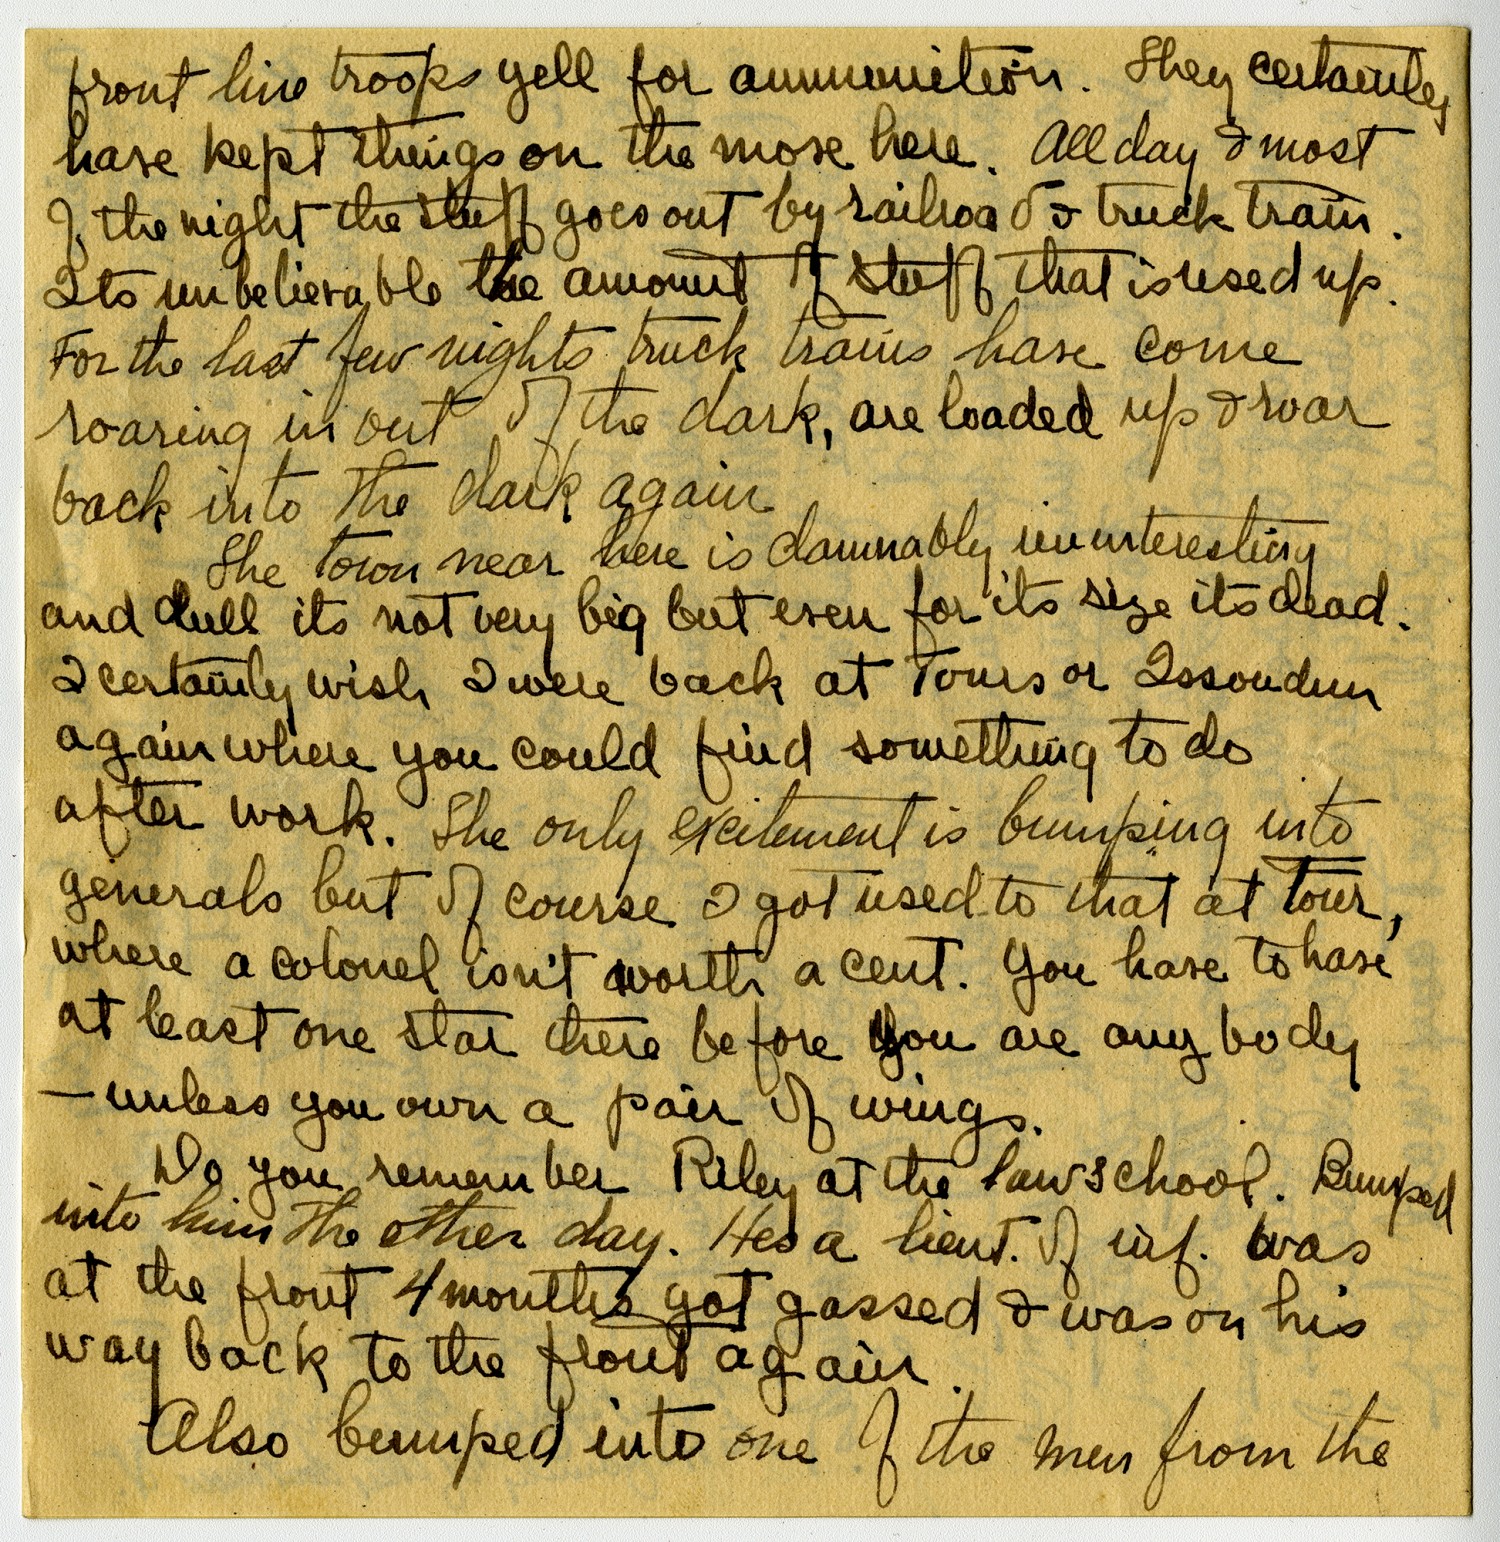 front line troops yell for ammunition. They certainly
have kept things on the move here. All day & most
of the night the stuff goes out by railroad & truck train.
Its unbelievable the amount of stuff that is used up.
For the last few nights truck trains have come
roaring in out of the dark, are loaded up & roar
back into the dark again
The town near here is damnably uninteresting
and dull its not very big but even for its size its dead.
I certainly wish I were back at Tours or Issoudun
again where you could find something to do
after work. The only excitement is bumping into
generals but of course I got used to that at Tour,
where a colonel isn't worth a cent. You have to have
at least one star there before you are any body
— unless you own a pair of wings.
Do you remember Riley at the law school. Bumped
into him the other day. Hes a lieut. of inf. was
at the front 4 months got gassed & was on his
way back to the front again.
Also bumped into one of the men from the